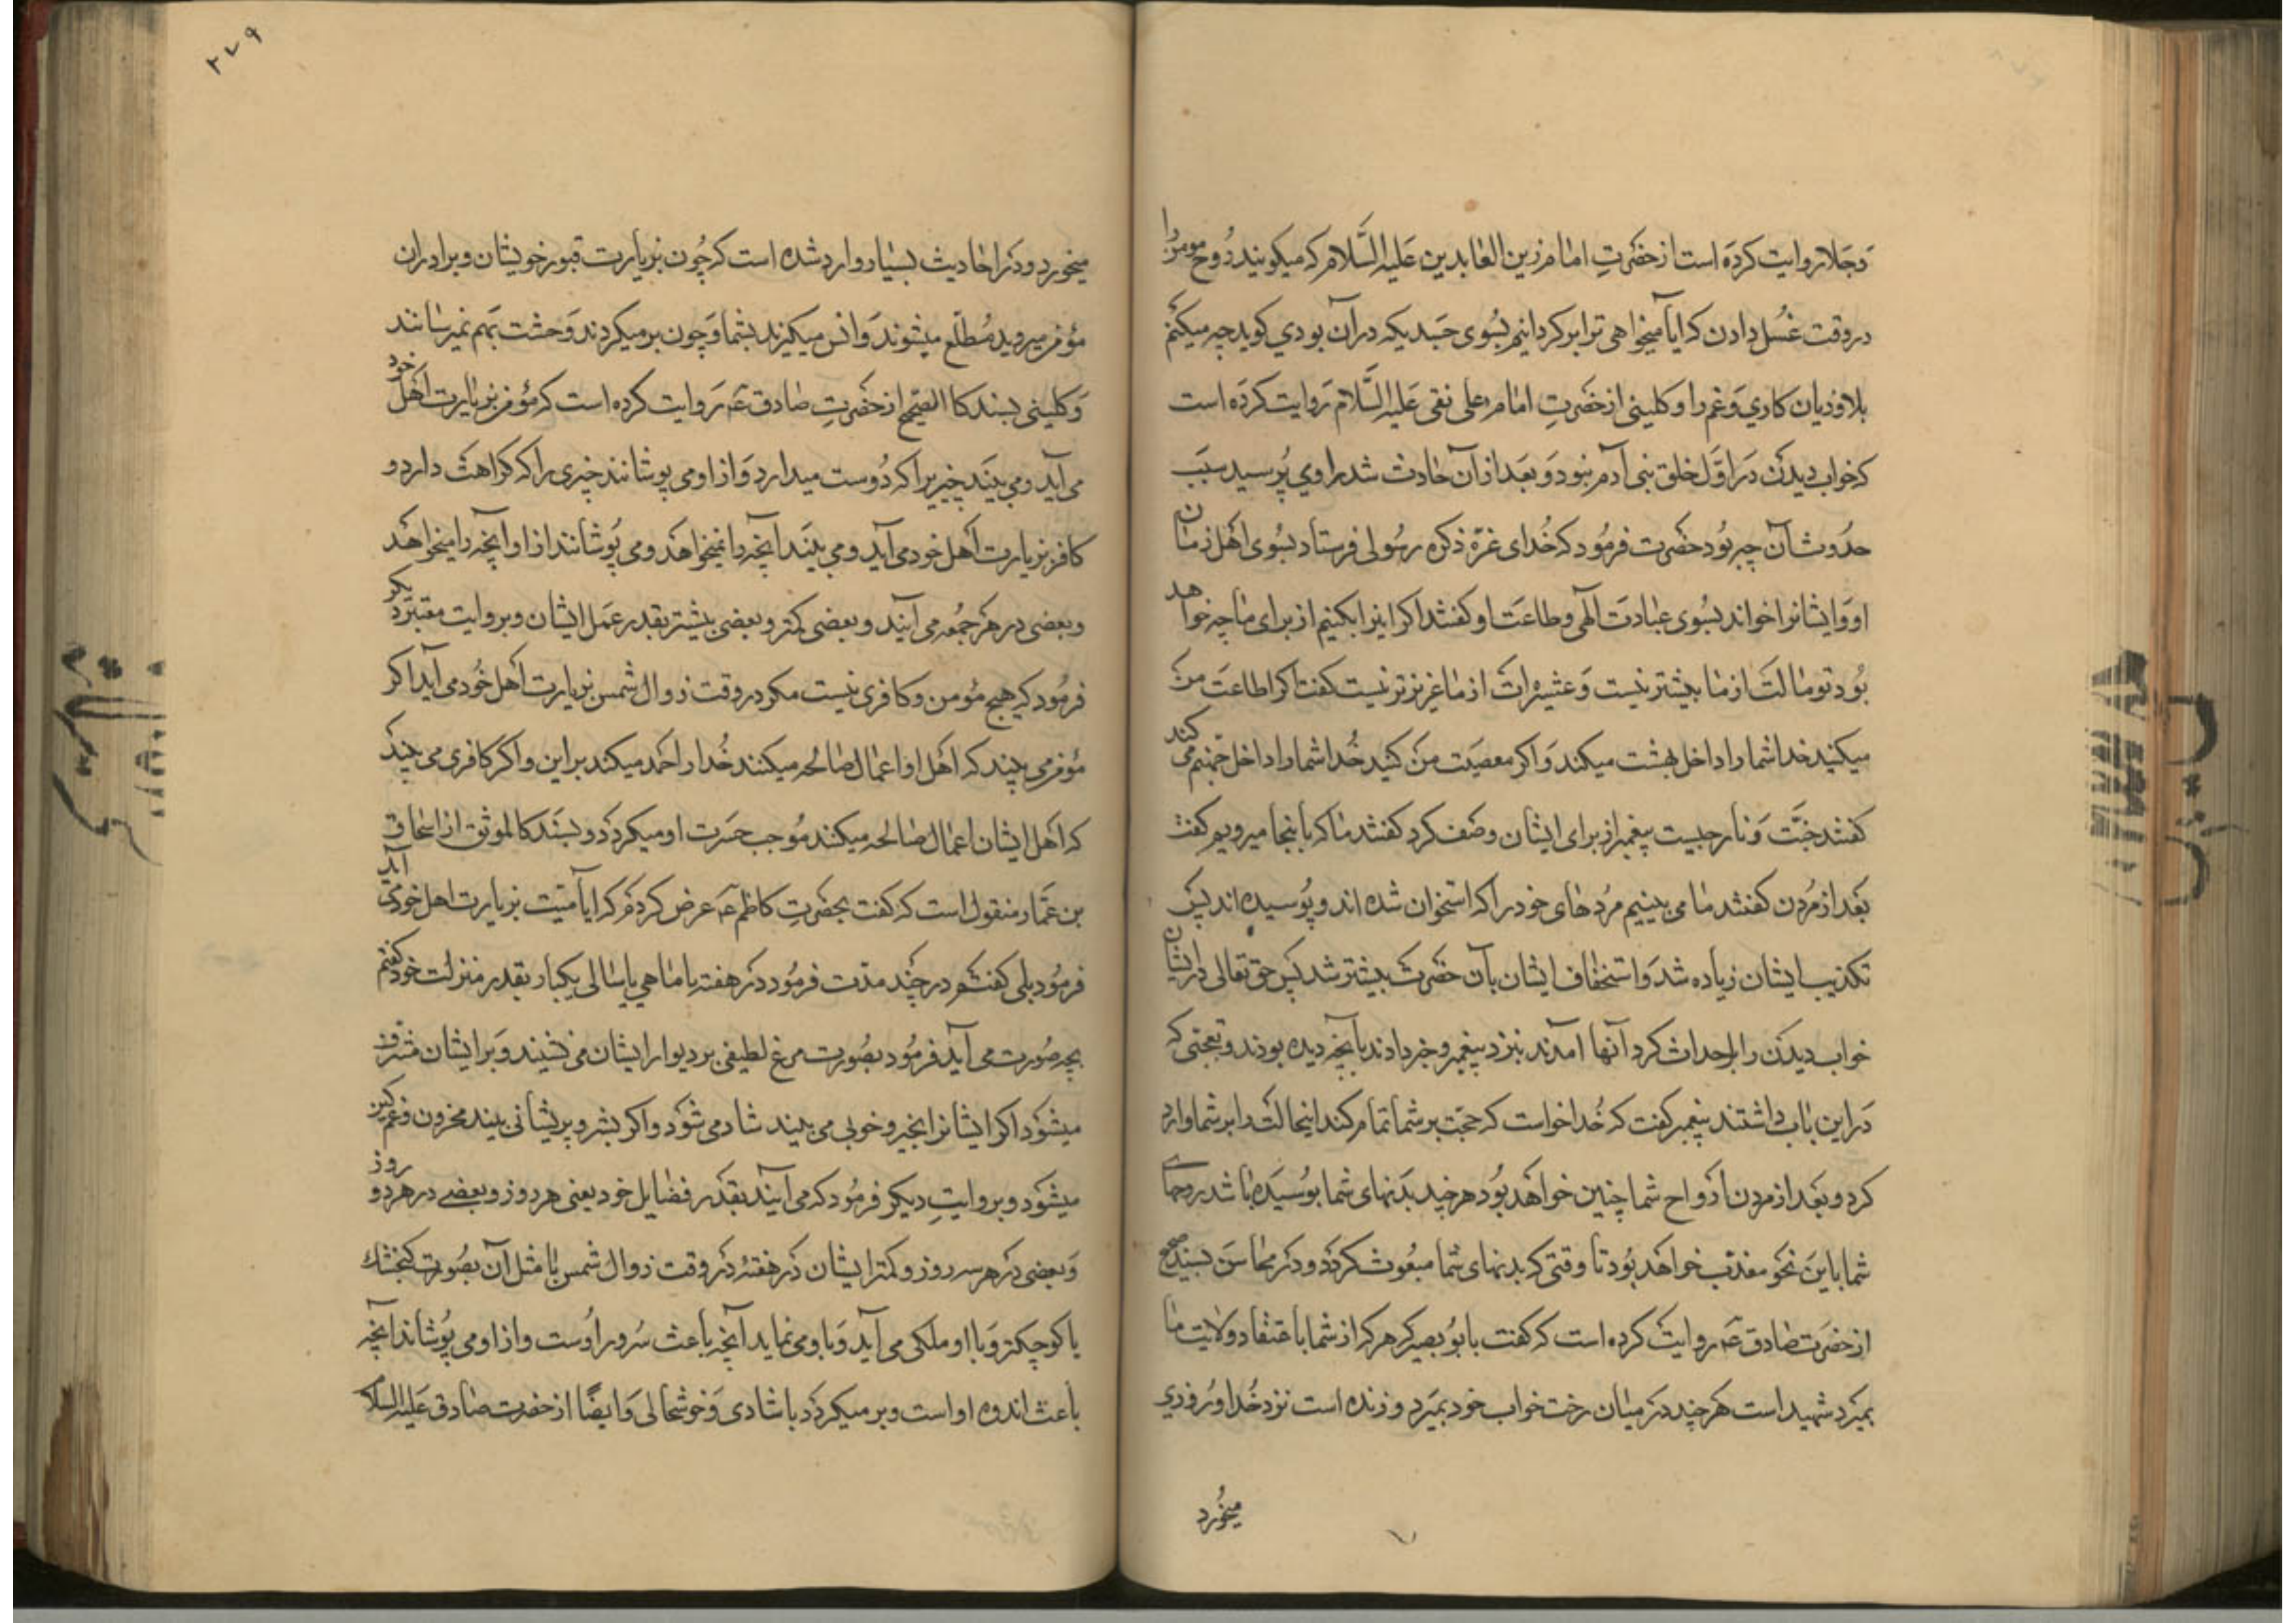 دجلا روایت کرده است از حضرتِ امام زین العابدین علیه السَّلام که میکویند رُوح مومن را
در وقت غسُل دادن که ایا میخواهی ترا برکردانیم بسُوی جسدیکه در آن بودي کوید چه میکنم
بلا و زیان کاري و غم را و کلینی از حضرتِ امام علی نقی علیه السَّلام روایت کرده است
که خواب دیدن در اوَّل خلق بنی آدم نبود و بعد از آن حادث شد راوي پُرسید سبب
حدُوث آن چه بُود حضرت فرمُود که خُدای عزّ ذکره رسُولی فرستاد بسُوی اهل زمان
او و ایشانرا خواند بسُوی عبادت الهی و طاعت او کفتند اکر اینرا بکنیم از برای ما چه خواهد
بُود تو مالت از ما بیشتر نیست و عشیرات از ما عزیزتر نیست کفت اکر اطاعت من
میکنید خدا شما را داخل بهشت میکند و اکر معصیت من کنید خُدا شما را داخل جهنم می کند
کفتند جنَّت و نار چیست پیغمبر از برای ایشان وصف کرد کفتند ما کی باینجا میرویم کفت
بعد از مُردن کفتند ما می بینیم مُردهای خود را که استخوان شده اند و پُوسیده اند پس
تکذیب ایشان زیاده شد و استخفاف ایشان بآن حضرت بیشتر شد پس حق تعالی در ایشان
خواب دیدن را احداث کرد آنها آمدند بنزد پیغمبر و خبر دادند بآنچه دیده بودند و تعجبی که
در این باب داشتند پیغمبر کفت که خُدا خواست که حجّت بر شما تمام کند اینحالت را بر شما وارد
کرد و بعد از مردن ارواح شما چنین خواهد بُود هر چند بدنهای شما پوسیده باشد روحهای
شما باین نحو معذب خواهد بُود تا وقتی که بدنهای شما مبعُوث کردد و در محاسن بسند صحیح
از حضرت صادق عه روایت کرده است که کفت بابو بصیر که هر که از شما باعتقاد ولایت ما
بمیرد شهید است هر چند در میان رخت خواب خود بمیرد و زنده است نزد خُدا و رُوزي
میخُورد
۲۷۹
میخورد و در احادیث بسیار وارد شده است که چُون بزیارت قبور خویشان و برادران
مؤمن میروید مُطلّع میشوند و انس میکیرند بشما و چون بر میکردند وحشت بهم نمیرسانند
و کلینی بسند کالصّحیح از حضرتِ صادق عه روایت کرده است که مؤمن بزیارت اهل خود
می آید و می بیند چیزیرا که دُوست میدارد و از او می پوشانند چیزی را که کراهت دارد و
کافر بزیارت اهل خود می آید و می بیند آنچه را نمیخواهد و می پُوشانند از او آنچه را میخواهد
و بعضی در هر جمُعه می آیند و بعضی کمتر و بعضی بیشتر بقدر عمل ایشان و بروایت معتبر دیکر
فرمُود که هیچ مؤمن و کافری نیست مکر در وقت زوال شمس بزیارت اهل خُود می آید اکر
مؤمن می بیند که اهل او اعمال صالحه میکنند خُدا را حمد میکند بر این و اکر کافری می بیند
که اهل ایشان اعمال صالحه میکنند مُوجب حسرت او میکردد و بسند کالموثق از اسحاق
بن عمّار منقول است که کفت بحضرتِ کاظم عه عرض کردم که ایا میّت بزیارت اهل خود می آید
فرمُود بلی کفتم در چند مدّت فرمُود در هفته یا ماهی یا سالی یکبار بقدر منزلت خود کفتم
بچه صُورت می آید فرمُود بصُورت مرغ لطیفی بر دیوار ایشان می نشیند و بر ایشان مشرف
میشوُد اکر ایشانرا بخیر و خوبی می بیند شاد می شوُد و اکر بشر و پریشانی بیند محزون و غمکین
میشوُد و بروایتِ دیکر فرمُود که می آیند بقدر فضایل خود یعنی هر روز و بعضے در هر دو روز
و بعضی در هر سه روز و کمتر ایشان در هفته در وقت زوال شمس یا مثل آن بصُورت کنجشک
یا کوچکتر و با او ملکی می آید و باو می نماید آنچه باعث سُرور اوُست و از او می پُوشاند آنچه
باعث اندوه او است و بر میکردد با شادی و خوشحالی و ایضًا از حضرت صادق علیه السلام